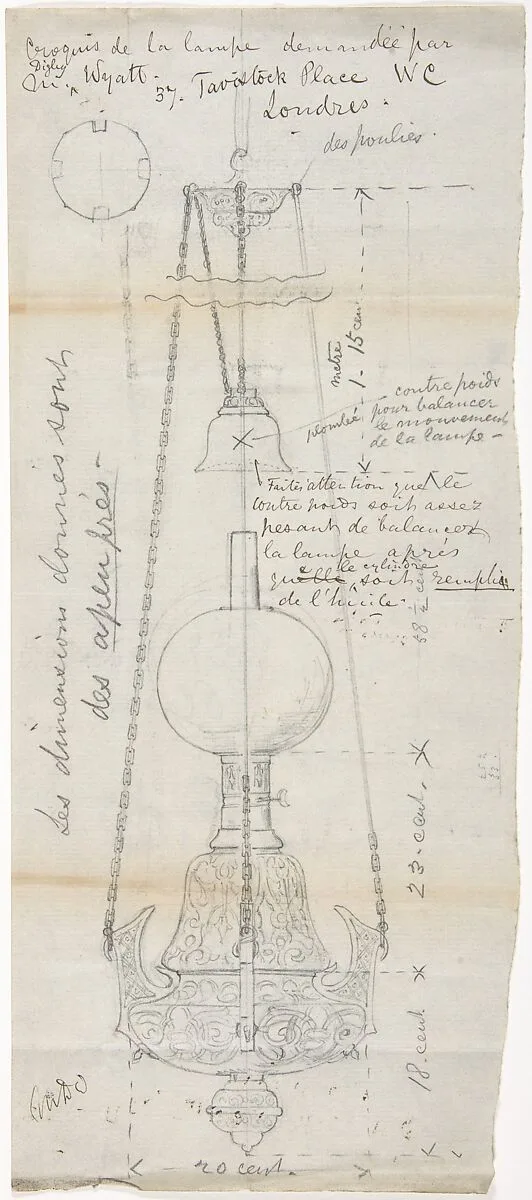 Croquis de la lampe demandée par
M. Digby Wyatt. 37. Tavistock Place WC
Londres.
des poulies.
1 metre 15 cent
contre poids
plombée pour balancer
le mouvement
de la lampe —
Faites attention que le
contre poids soit assez
pesant de balancer
la lampe après
que le cylindre soit remplie
de l'huile.
Les dimensions données sont
des apeuprés —
38 1/2 cent
23 cent.
18 cent
20 cent.